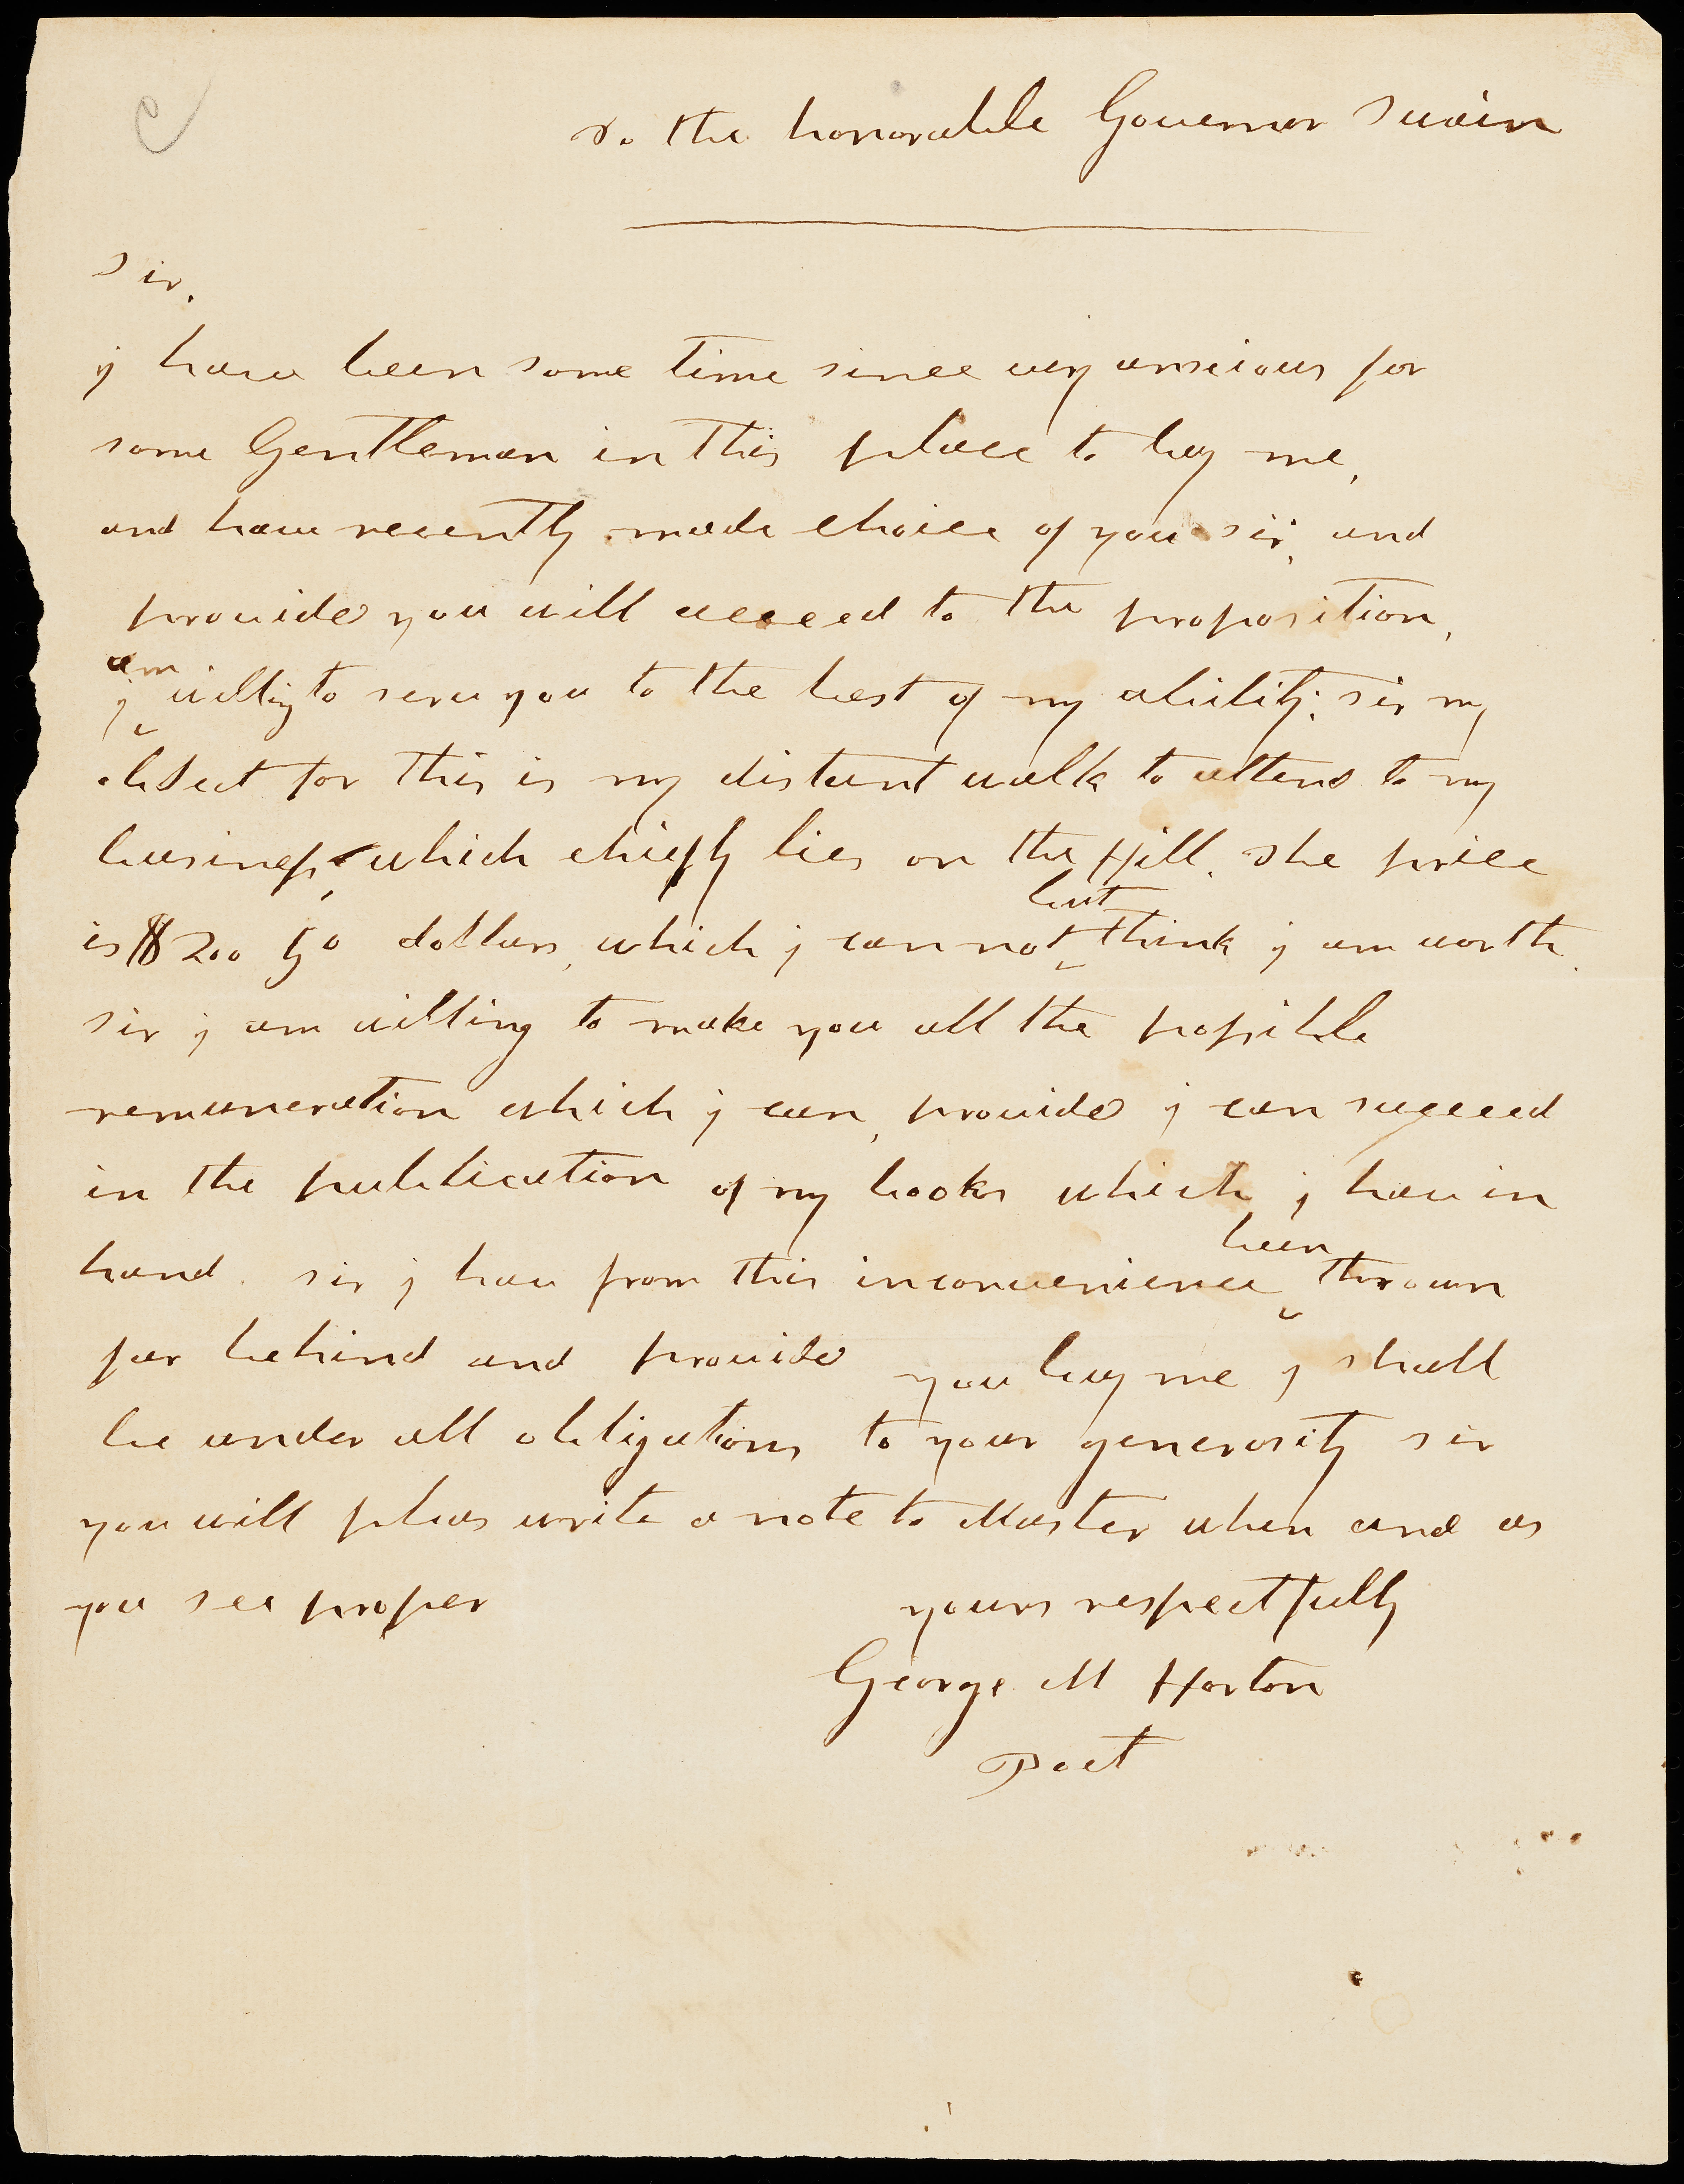 To the honorable Governor Swain
Sir,
j have been some time since very anxious for
some Gentleman in this place to buy me,
and have recently made choice of you sir, and
provided you will acceed to the proposition,
j am willing to serve you to the best of my ability, sir my
object for this is my distant walk to attend to my
business, which chiefly lies on the Hill. The price
is $200 50 dollars, which j can not but think j am worth.
sir j am willing to make you all the possible
remuneration which j can, provided j can succeed
in the publication of my books which j have in
hand. sir j have from this inconvenience been thrown
far behind and provided you buy me j shall
be under all obligations to your generosity sir
you will pleas write a note to Master when and as
you see proper
yours respectfully
George M Horton
Poet